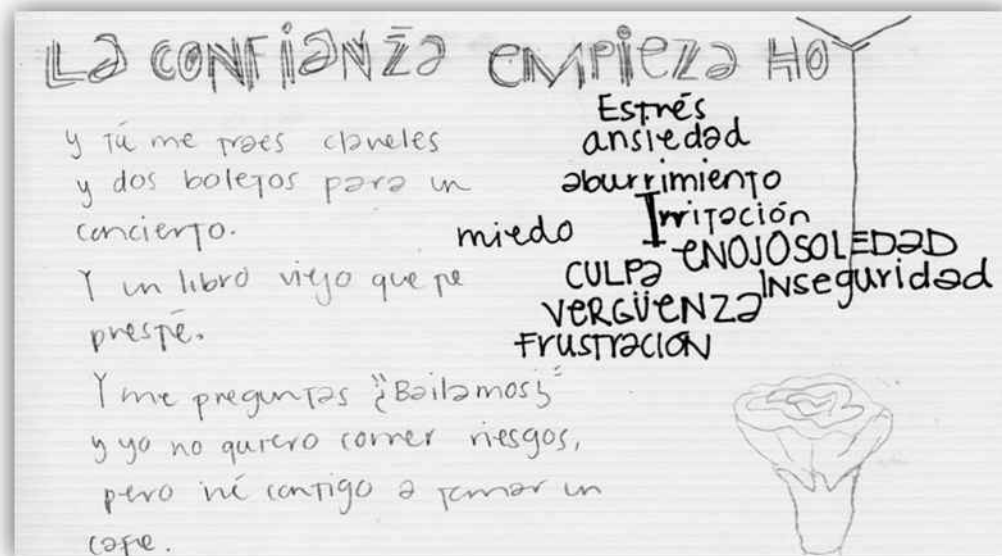 La CONFiaNZa EMPieza HOY
y tú me traes claveles
y dos boletos para un
concierto.
Y un libro viejo que te
presté.
Y me preguntas "¿Bailamos?"
y yo no quiero correr riesgos,
pero iré contigo a tomar un
café.
Estrés
ansiedad
aburrimiento
Irritación
miedo
ENOJO
SOLEDaD
CULPa
INseguridad
VERGÜENZa
FRUSTRaCION